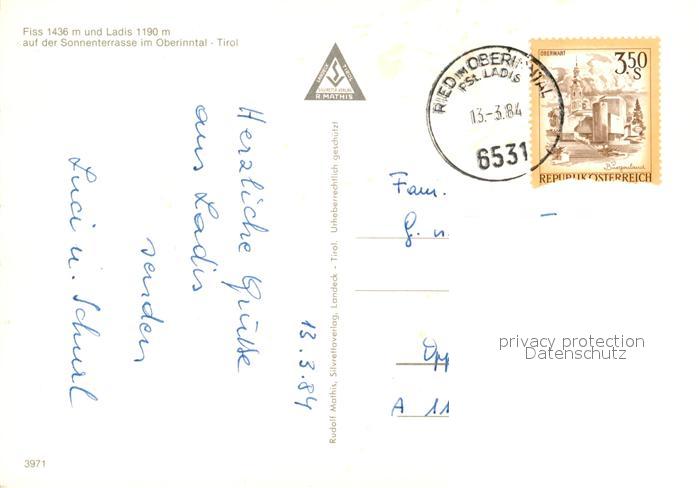 Fiss 1436 m und Ladis 1190 m
auf der Sonnenterrasse im Oberinntal - Tirol
LANDECK TIROL
SILVRETTA-VERLAG
R. MATHIS
RIED IM OBERINNTAL
PSt. LADIS
13.-3.84
6531
OBERWART
3.50
S
Burgenland
REPUBLIK ÖSTERREICH
13.3.84
Herzliche Grüße
aus Ladis
senden
Luci u.
Rudolf Mathis, Silvrettaverlag, Landeck - Tirol. Urheberrechtlich geschützt
Fam.
G. u.
A 11
privacy protection
Datenschutz
3971